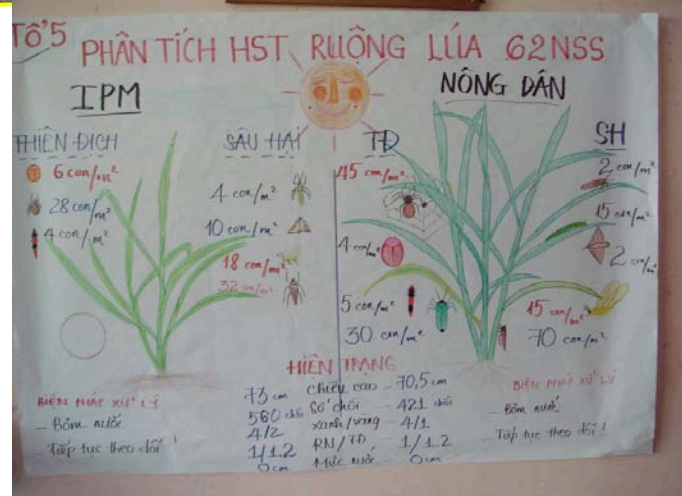 TỔ 5
PHÂN TÍCH HST RUỘNG LÚA 62NSS
IPM
NÔNG DÂN
THIÊN ĐỊCH
SÂU HẠI
TĐ
SH
6 con/m²
28 con/m²
4 con/m²
4 con/m²
10 con/m²
18 con/m²
32 con/m²
45 con/m²
4 con/m²
5 con/m²
30 con/m²
2 con/m²
15 con/m²
2 con/m²
15 con/m²
70 con/m²
HIỆN TRẠNG
73 cm chiều cao - 70,5 cm
560 chồi Số chồi - 421 chồi
4/2 xanh/vàng - 4/1
1/1.2 RN/TĐ - 1/1.2
0 cm Mức nước - 0 cm
BIỆN PHÁP XỬ LÝ
- Bơm nước
- Tiếp tục theo dõi!
BIỆN PHÁP XỬ LÝ
- Bơm nước
- Tiếp tục theo dõi!